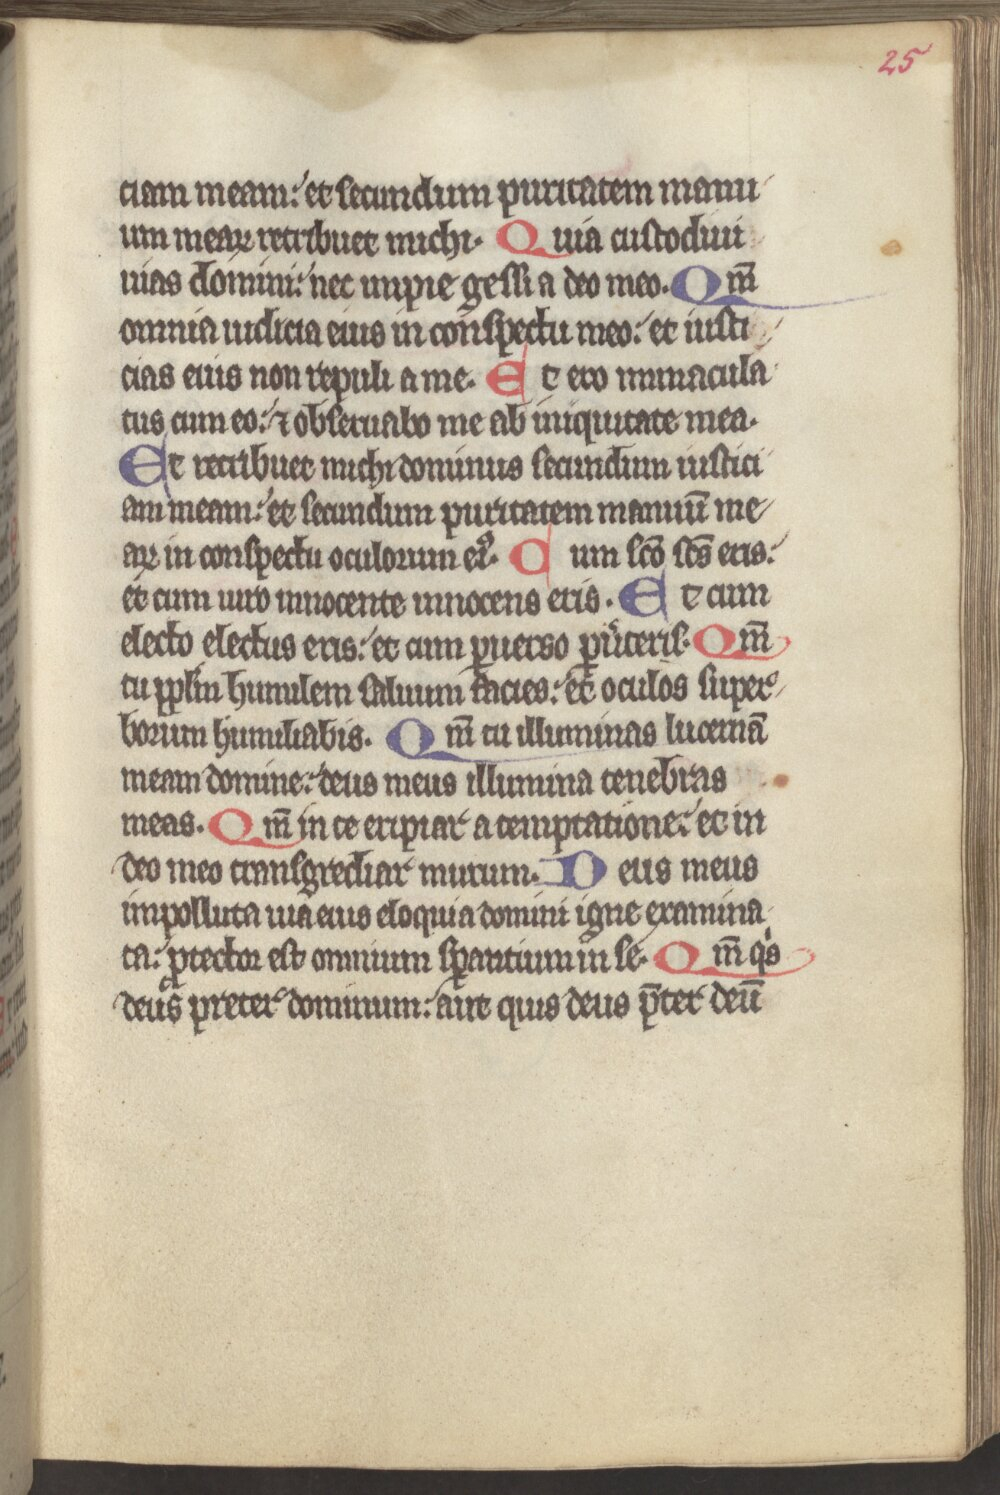 25
ciam meam: et secundum puritatem manu
um meaꝝ retribuet michi. Quia custodiui
uias domini: nec impie gessi a deo meo. Qm̅
omnia iudicia eius in conspectu meo: et iusti
cias eius non repuli a me. Et ero immacula
tus cum eo: ⁊ obseruabo me ab iniquitate mea.
Et retribuet michi dominus secundum iustici
am meam: et secundum puritatem manuu̅ me
aꝝ in conspectu oculorum ei᷒. Cum sc̅o sc̅s eris:
et cum uiro innocente innocens eris. Et cum
electo electus eris: et cum ꝑuerso ꝑu̓teris. Qm̅
tu ppl̅m humilem saluum facies: et oculos super
borum humiliabis. Qm̅ tu illuminas lucerna̅
meam domine: deus meus illumina tenebras
meas. Qm̅ in te eripiar a temptatione: et in
deo meo transgrediar murum. Deus meus
impolluta uia eius eloquia domini igne examina
ta: ꝓtector est omnium sꝑantium in se. Qm̅ qͥs
deus preter dominum: aut quis deus p̅ter deu̅